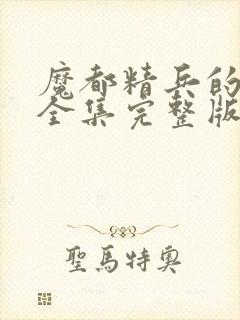 魔都精兵的
全集完整版
聖馬特奧